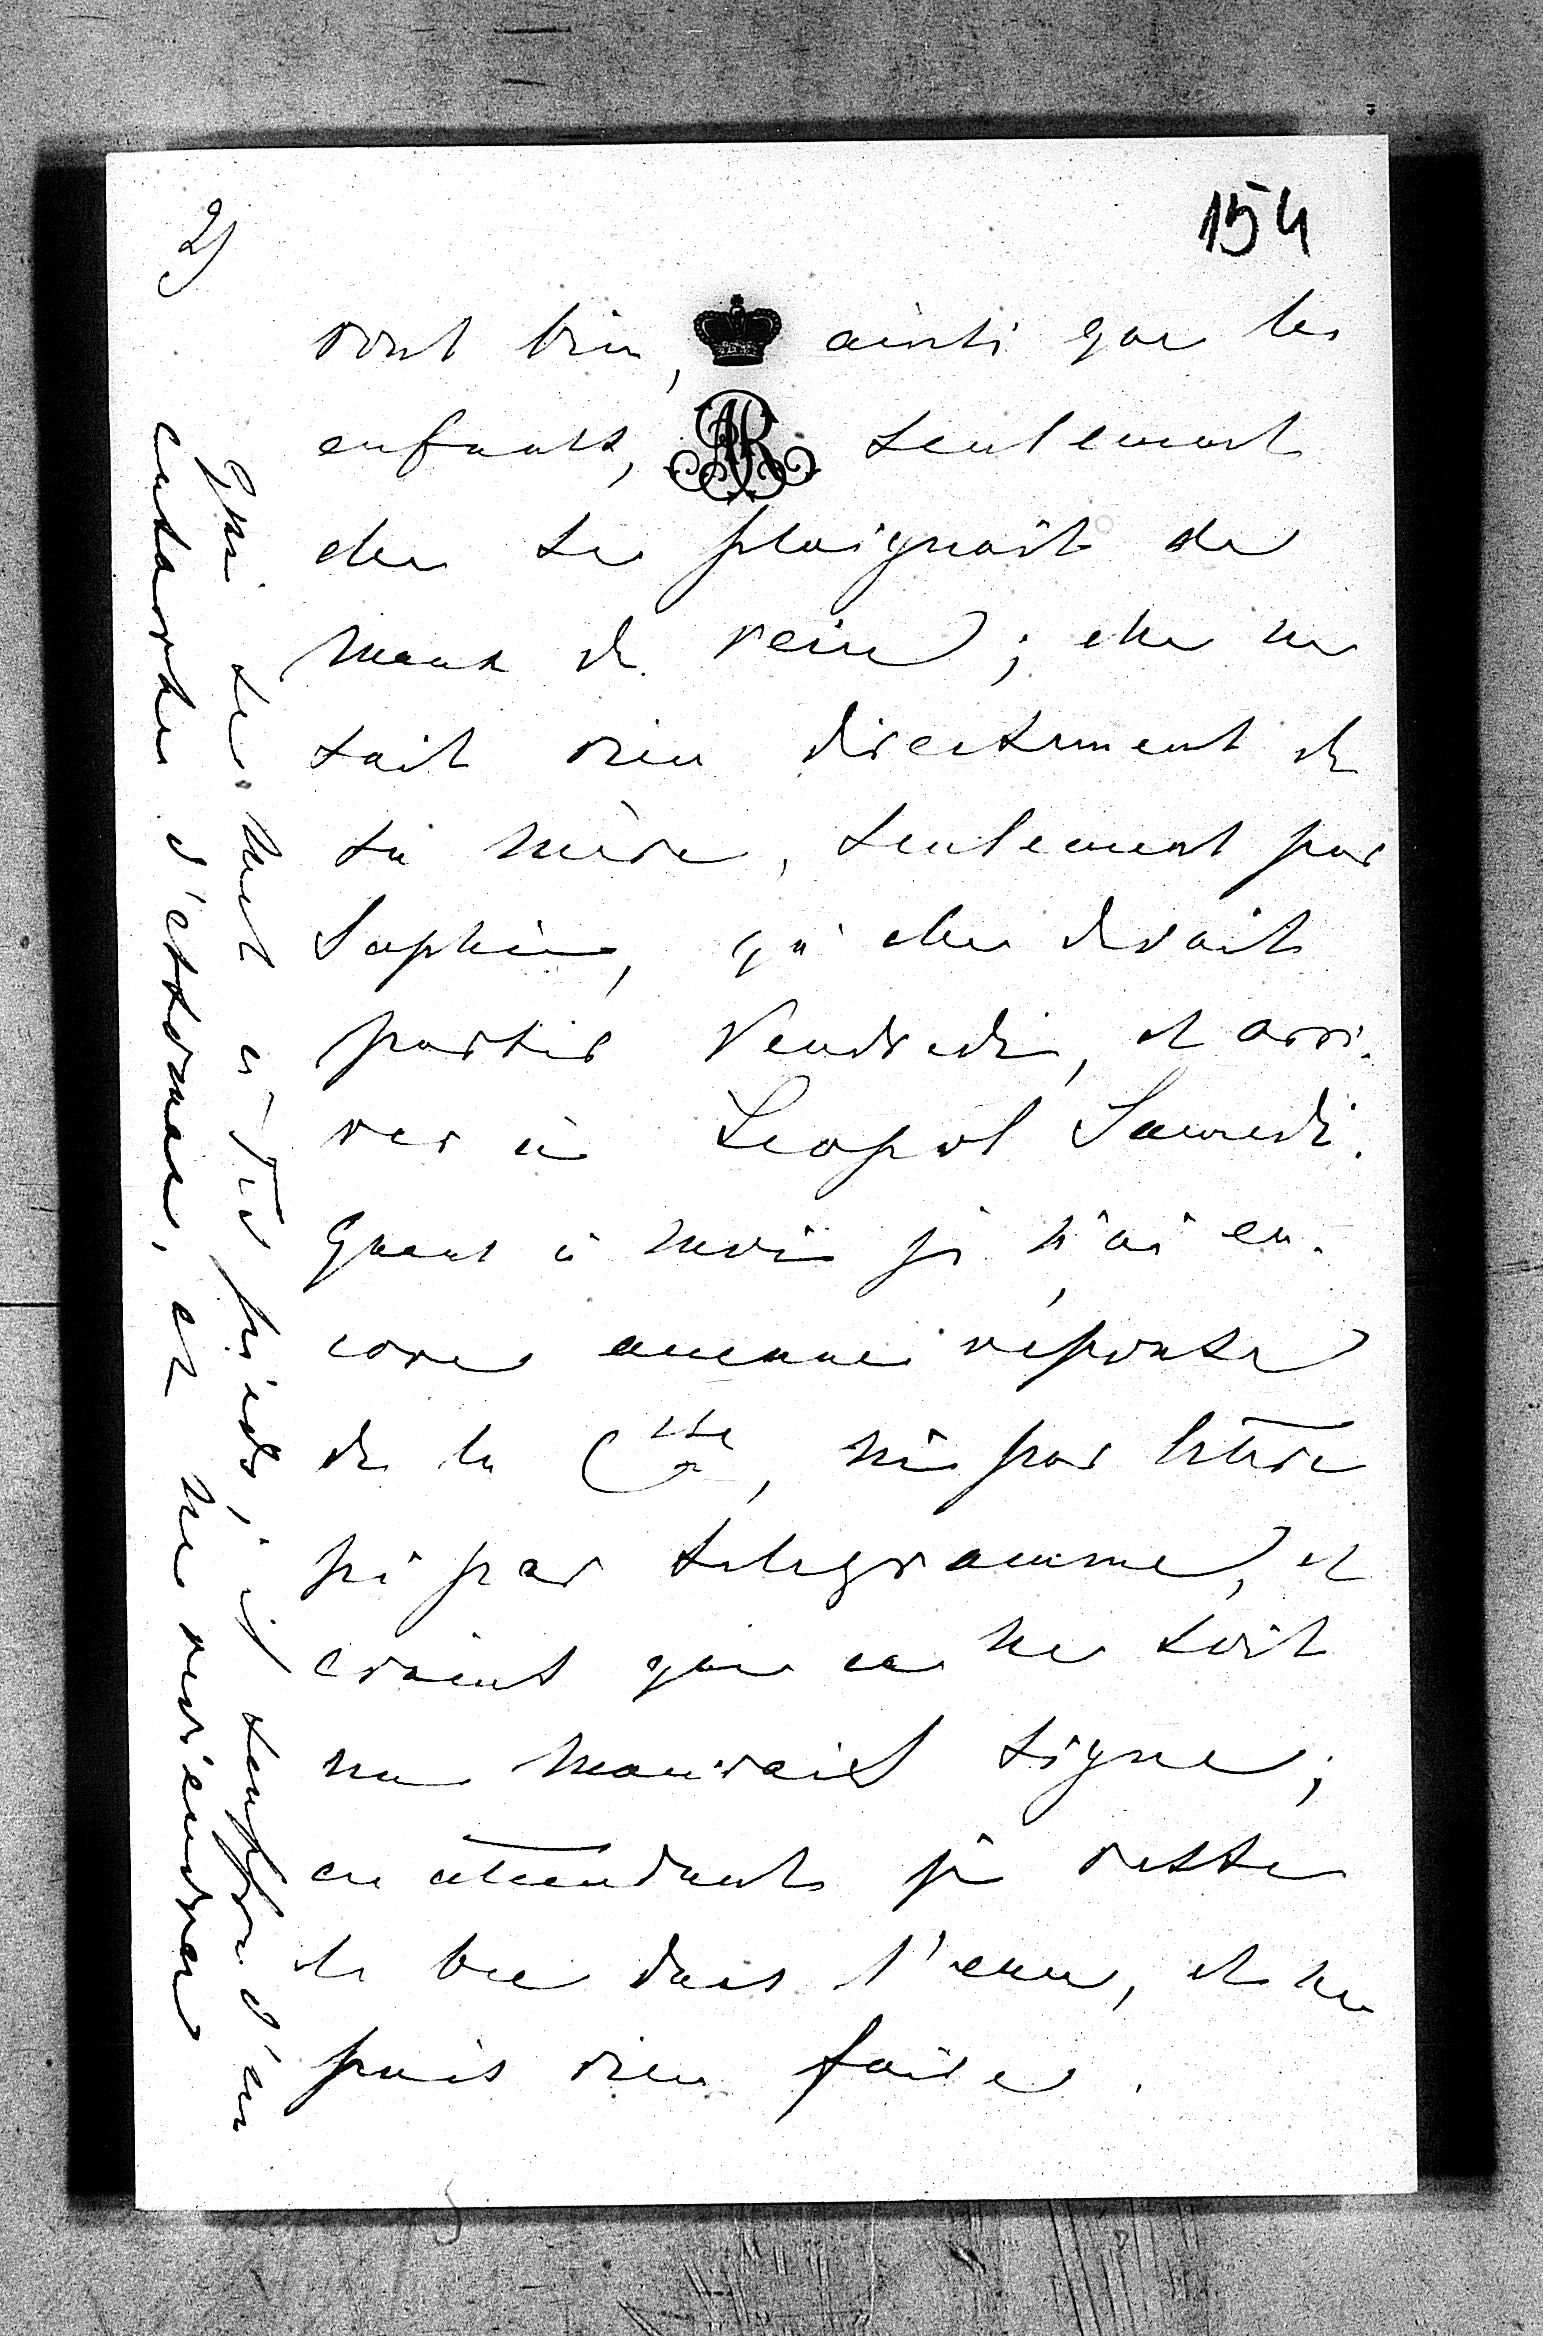 2)
154
vont bien, ainsi que les
enfants, seulement
elle se plaignait de
maux de reins; elle ne
sait rien directement de
sa mère, seulement par
Sophie, qu'elle devait
partir Vendredi, et arri-
ver à Leopol Samedi.
Quant à moi je n'ai en-
core aucune réponse
de la Ctsse, ni par lettre
ni par telegramme, et
craint que ce ne soit
un mauvais signe;
en attendant je reste
le bec dans l'eau, et ne
puis rien faire.
Qui se met à Tes pieds, il souffre d'un
catarrhe d'estomac, et ne reviendra